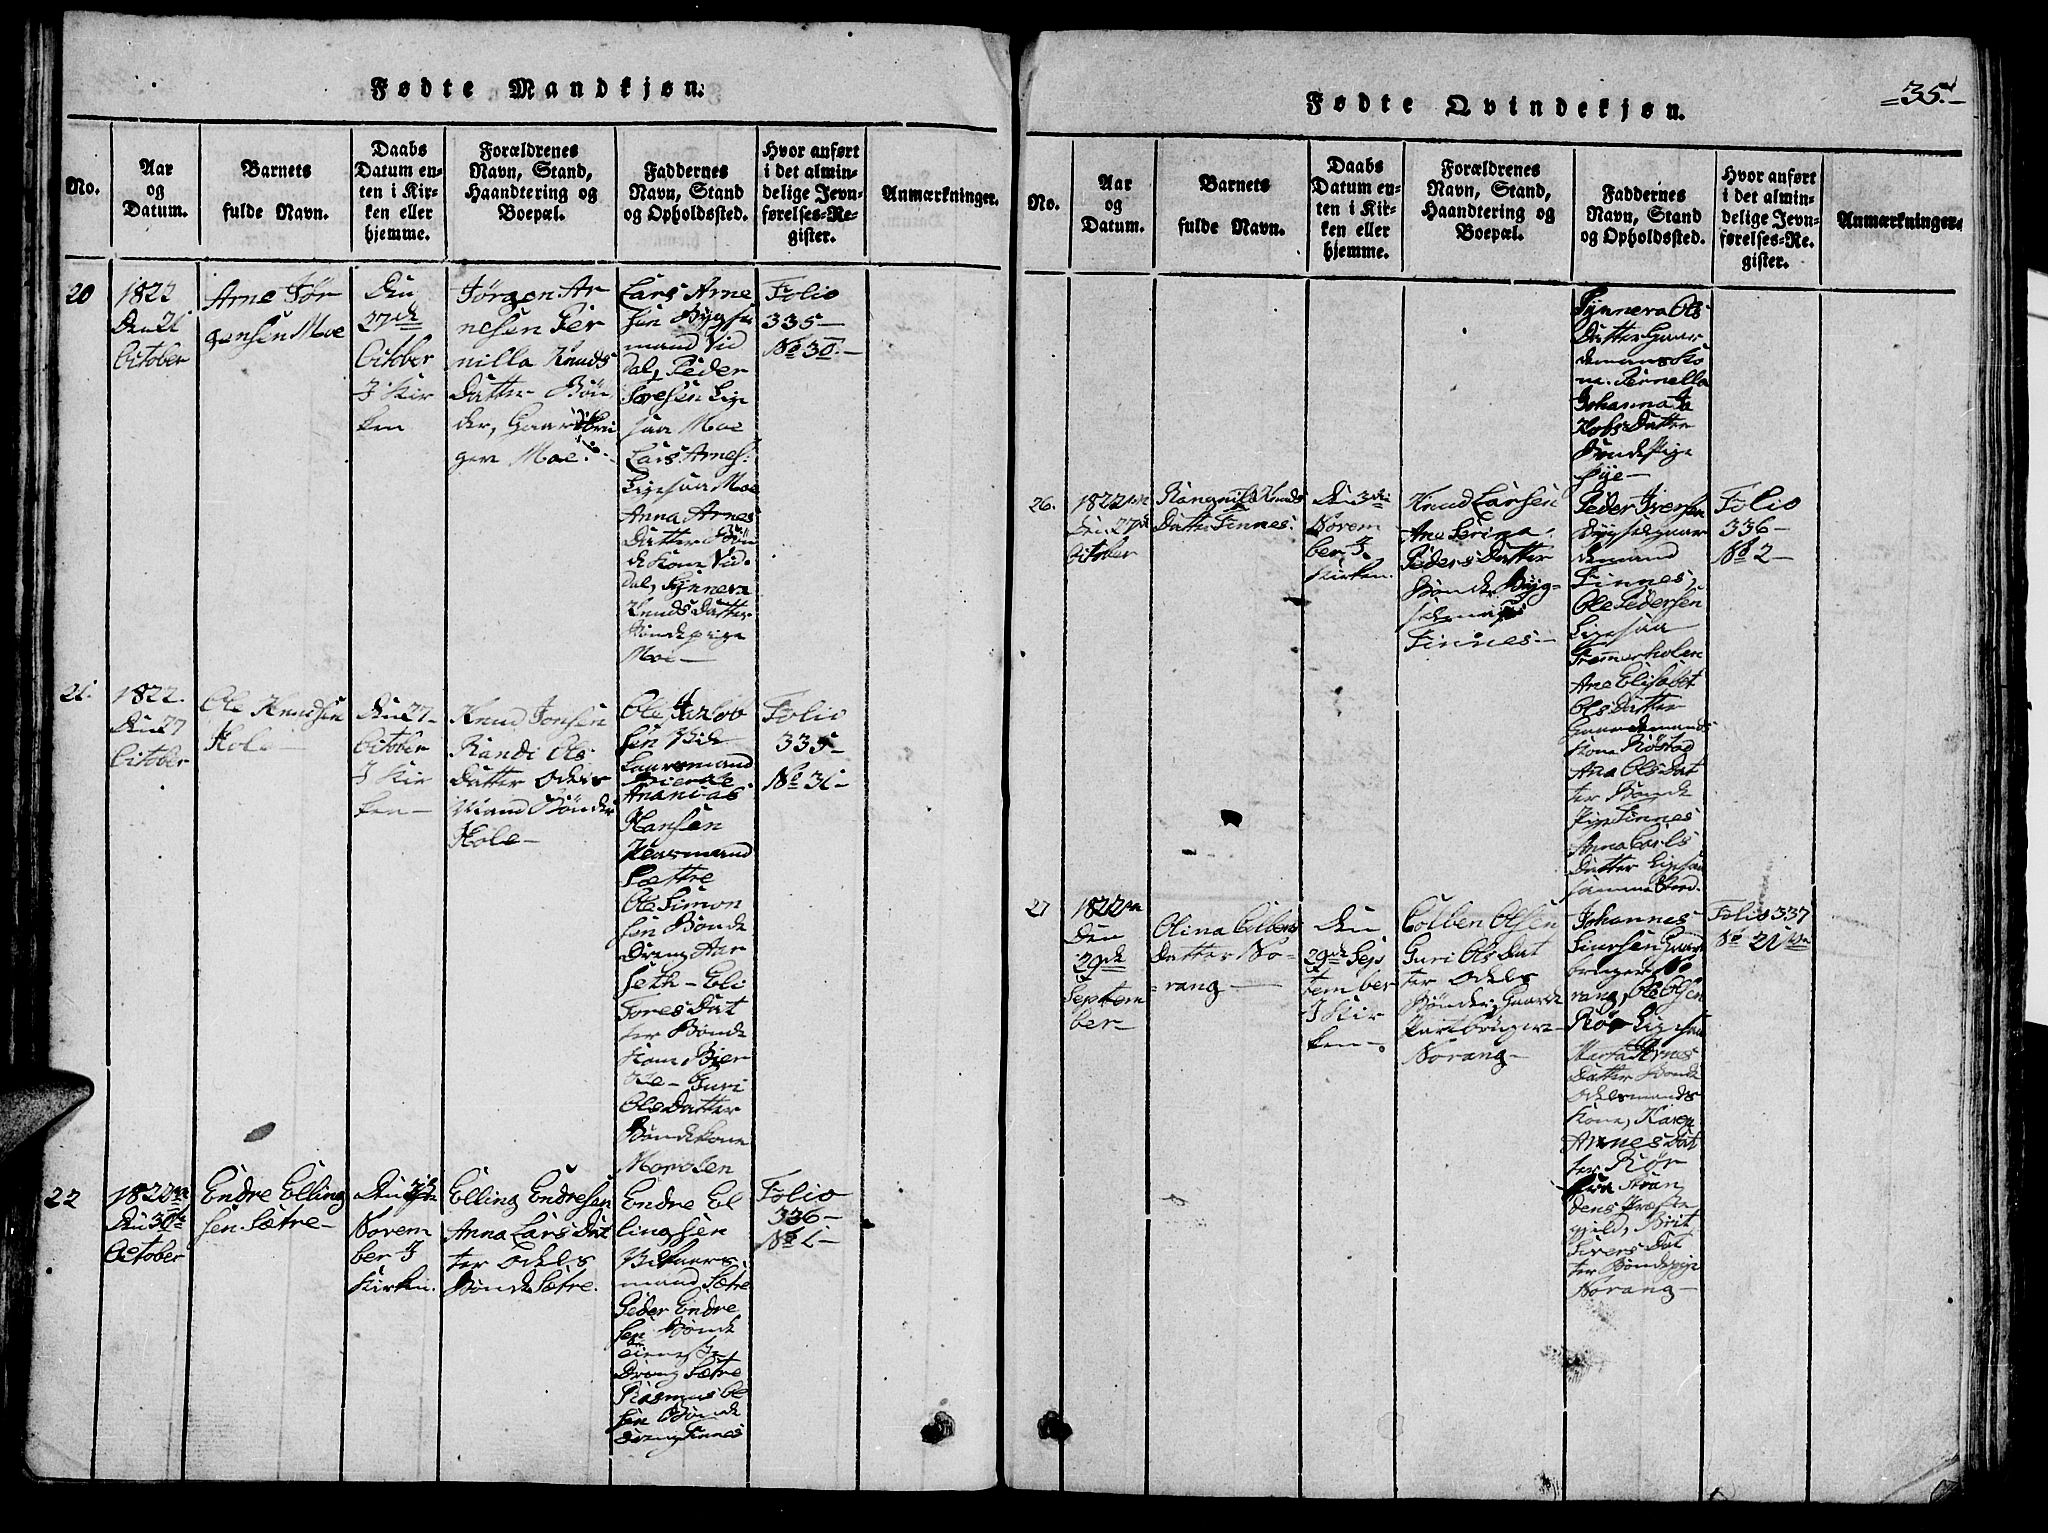 Fødte Mandkjøn.
No.
Aar
og
Datum.
Barnets
fulde Navn.
Daabs
Datum en-
ten i Kir-
ken eller
hjemme.
Forældrenes
Navn, Stand,
Haandtering og
Boepæl.
Faddernes
Navn, Stand
og Opholdssted.
Hvor anført
i det almin-
delige Jevn-
førelses-Re-
gister.
Anmærkninger.
20
1822
Den 21
October
Arne Jør
gensen Moe
Den
27de
October
I Kir
ken
Jørgen Ar
nesen Per
nilla Knuds
Datter Bøn
der, Gaardbru
gere Moe
Lars Arne
sen Bygsel
mand Vid
dal, Peder
Ligesaa Moe
Lars Arnes:
Ligesaa Moe
Anna Arnes
Datter Bøn
de Kone Vid
dal, Synneva
Knuds Datter
Bondepige
Moe—
Folio
335—
No 30.—
21.
1822.
Den 27
October
Ole Knudsen
Hole—
Den 27—
October
I Kir
ken—
Knud Jonsen
Randi Ols
Datter Odels
Mand Bønder
Hole—
Ole Jacob
sen
Ananias
Hansen
Huusmand
Sættre
Ole Simon
sen Bonde
Dreng Aar
seth— Eli
Tores Dat
ter Bonde
Kone Bier
Guri
Ols Datter
Bondekone
Folio
335—
No 31—
22
1822
Den 30te
October
Endre Elling
sen Sætre—
Den 3de
Novem
ber I
Kirken.
Elling Endresen
Anna Lars Dat
ter Odels
Bønder Sætre.
Endre El
lingsen
mand Sætre
Peder Endre
sen Bonde
Dreng Sætre
Rasmus Ol
sen Bonde
dreng Finnes
Folio
336—
No 1—
Fødte Qvindekjøn.
=35.—
No.
Aar
og
Datum.
Barnets
fulde Navn.
Daabs
Datum en-
ten i Kir-
ken eller
hjemme.
Forældrenes
Navn, Stand,
Haandtering og
Boepæl.
Faddernes
Navn, Stand
og Opholdssted.
Hvor anført
i det almin-
delige Jevn-
førelses-Re-
gister.
Anmærkninger.
Synneva Ols
Datter Gaar
demans Ko
ne. Pernella
Johanna Ja
kobs Datter
Bondepige
26.
1822
Den 27de
October
Rangnila Knuds
Datter Finnes.
Den 3die
Novem
ber I
Kirken.
Knud Larsen
Ane Serina
Peders Datter
Bønder Byg-
Finnes—
Peder Iversen
Bygselgaar
demand
Finnes,
Ole Pedersen
Ligesaa
Ane Elisabet
Ols Datter
Gaardemands
Kone Røstad
Ana Ols Dat
ter Bonde
Pige Finnes
Anna Carls
Datter Ligesaa
samme Sted.
Folio
336—
No 2—
27
1822
Den
29de
Septem
ber—
Olina Colbens
Datter No-
=rang—
Den
29de Sep
tember
I Kir
ken—.
Colben Olsen
Guri Ols Dat
ter Odels
Bønder, Gaarde
Partbrugere—
Norang—
Johannes
Siursen Gaard
bruger No
rang, Ole Olsen
Rør Ligesaa
Marta Arnes
Datter Bonde
Odelsmands
Kone, Karen
Arnes Dat
ter Rør
fra Stran
dens Præste
gjeld, Brit
Sivers Dat
ter Bondepige
Norang—
Folio 337
No 21